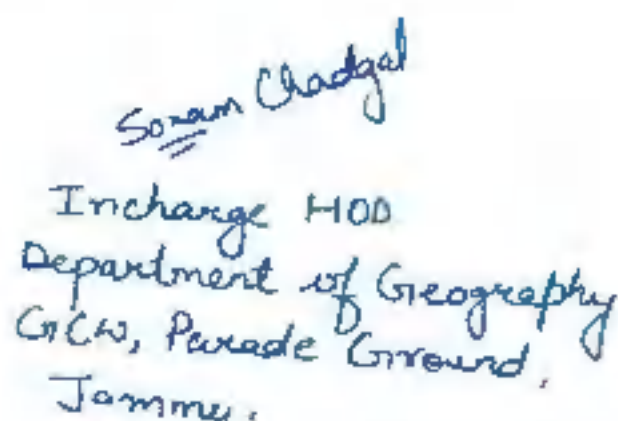 Sonam Chadgal
Incharge HOD
Department of Geography
GCW, Parade Ground,
Jammu.